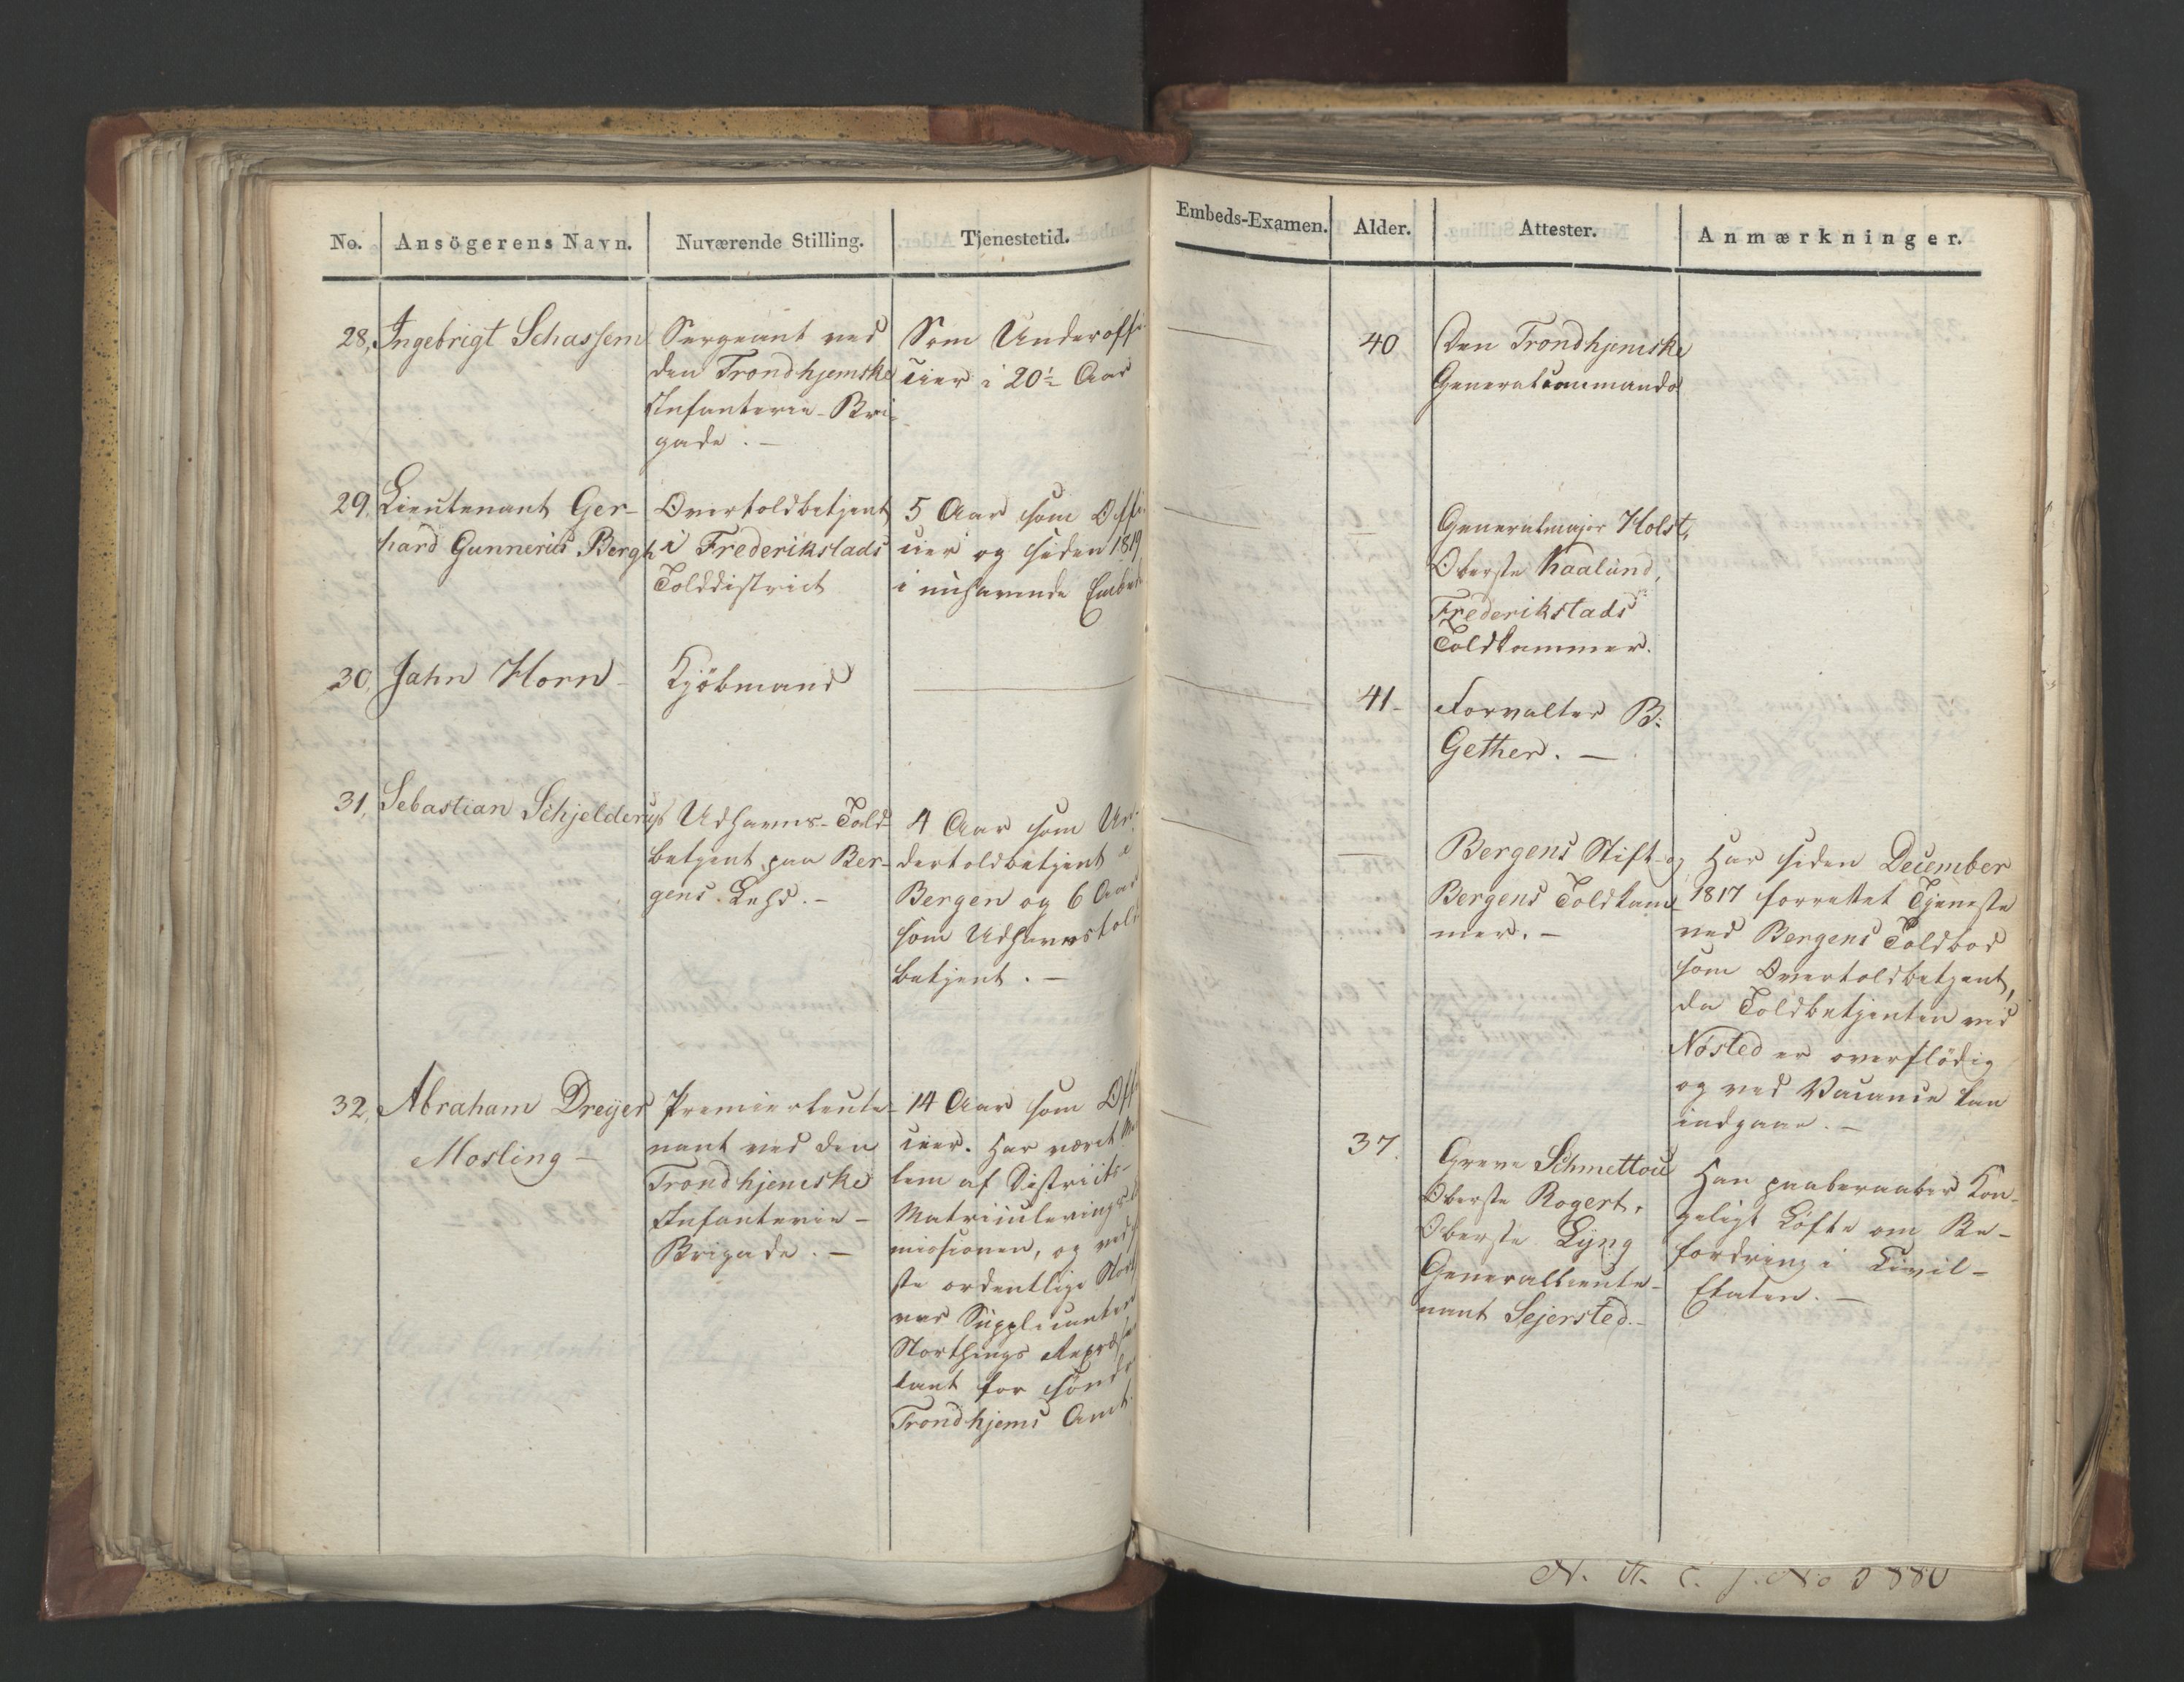 No.
Ansögerens Navn.
Nuværende Stilling.
Tjenestetid.
Embeds-Examen.
Alder.
Attester.
Anmærkninger.
28, Ingebrigt Schassem
Sergeant ved
den Trondhjemske
Infanterie-Bri-
gade. —
Som Underoffi-
cier i 20½ Aar
40
Den Trondhjemske
Generalcommando
29, Lieutenant Ger-
hard Gunnerius Bergh
Overtoldbetjent
i Frederikstads
Tolddistrict
5 Aar som Offi-
cier og siden 1819
i nuhavende Embede
—
Generalmajor Holst,
Oberste Kaalund,
Frederikstads
Toldkammer.
30, Jahn Horn -
Kjöbmand
41-
Forvalter B.
Gether. —
31, Sebastian Schjelderup
Udhavns-Told-
betjent paa Ber-
gens Lehd. -
4 Aar som Un-
dertoldbetjent i
Bergen og 6 Aar
som Udhavnstold
betjent. —
—
Bergens Stift og
Bergens Toldkam-
mer. -
Har siden December
1817 forrettet Tjeneste
ved Bergens Toldbod
som Overtoldbetjent,
da Toldbetjenten ved
Nösted er overflödig
og ved Vacance kan
indgaae. —
32, Abraham Dreyer
Mosling —
Premierlieute-
nant ved den
Trondhjemske
Infanterie-
Brigade. —
14 Aar som Offi
cier. Har været Me
lem af Districts-
Matriculerings
missionen, og ved
ste ordentlige Stor
var Suppleanter
Storthings Repræsen
tant for söndre
Trondhjems Amt.
37.
Greve Schmettou
Oberste Rogert,
Oberste Lyng
Generallieute-
nant Sejersted. -
Han paaberaaber Kon-
geligt Löfte om Be-
fordring i Civil-
Etaten. —